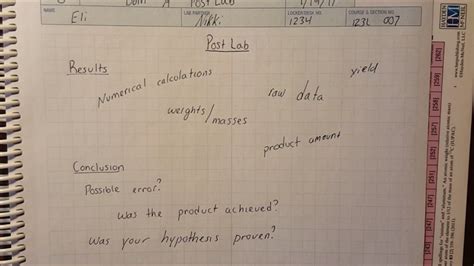 Post Lab
NAME
Eli
LAB PARTNER
Nikki
LOCKER/DESK NO.
1234
COURSE & SECTION NO.
123L 007
Post Lab
Results
Numerical calculations
yield
raw data
weights/
masses
product amount
Conclusion
Possible error?
Was the product achieved?
Was your hypothesis proven?
HAYDEN
HM
[262]
[259]
[258]
[257]
[252]
[247]
[251]